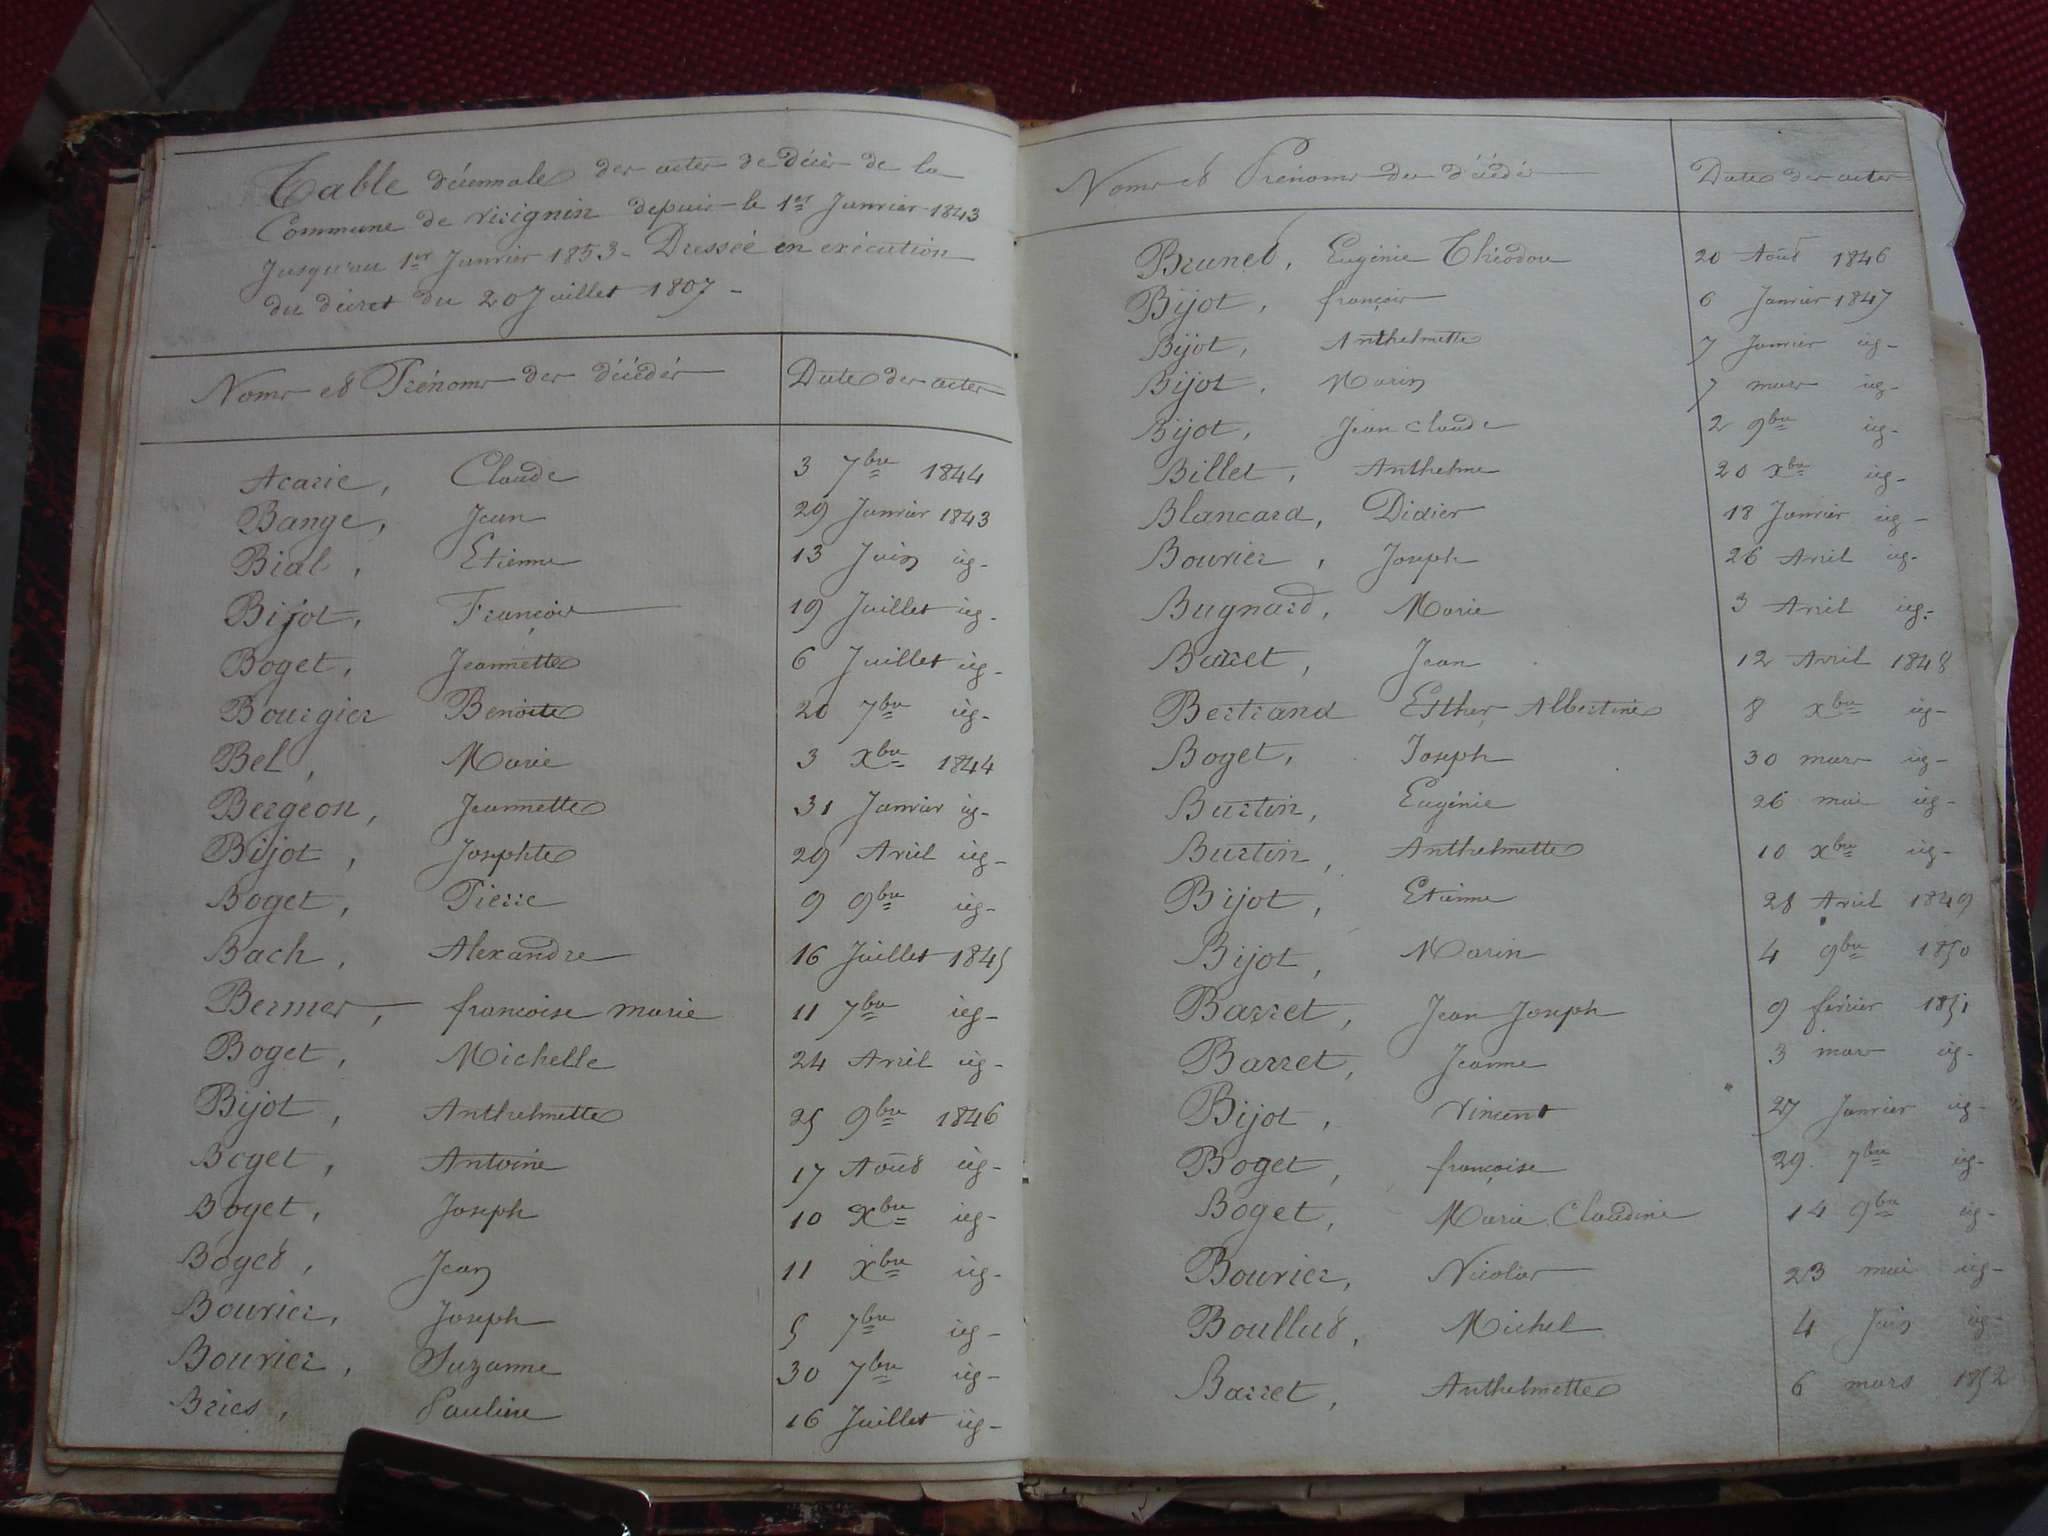 Table décennale des actes de décès de la
Commune de virignin depuis le 1er Janvier 1843
Jusqu'au 1er Janvier 1853 - Dressée en exécution
du décret du 20 Juillet 1807 -
Noms et Prénoms des décédés Date des actes
Acarie, Claude 3 7bre 1844
Bange, Jean 29 Janvier 1843
Bial, Etienne 13 Juin id-
Bijot, François 19 Juillet id-
Boget, Jeannette 6 Juillet id-
Bourgier Benoite 20 7bre id-
Bel, Marie 3 Xbre 1844
Bergeon, Jeannette 31 Janvier id-
Bijot, Josephte 29 Avril id-
Boget, Pierre 9 9bre id-
Bach, Alexandre 16 Juillet 1845
Bermer, francoise marie 11 7bre id-
Boget, Michelle 24 Avril id-
Bijot, Anthelmette 25 9bre 1846
Boget, Antoine 17 Août id-
Boget, Joseph 10 Xbre id-
Boget, Jean 11 Xbre id-
Bourier, Joseph 5 7bre id-
Bourier, Suzanne 30 7bre id-
Bries, Pauline 16 Juillet id-
Noms et Prénoms des décédés Date des actes
Brunet, Eugénie Théodore 20 Août 1846
Bijot, françois 6 Janvier 1847
Bijot, Anthelmette 7 Janvier id-
Bijot, Marin 7 mars id-
Bijot, Jean Claude 2 9bre id-
Billet, Anthelme 20 Xbre id-
Blancard, Didier 18 Janvier id-
Bourier, Joseph 26 Avril id-
Bugnard, Marie 3 Avril id-
Barret, Jean 12 Avril 1848
Bertrand Esther Albertine 8 Xbre id-
Boget, Joseph 30 mars id-
Burtin, Eugénie 26 mai id-
Burtin, Anthelmette 10 Xbre id-
Bijot, Etienne 28 Avril 1849
Bijot, Marin 4 9bre 1850
Barret, Jean Joseph 9 février 1851
Barret, Jeanne 3 mars id-
Bijot, Vincent 27 Janvier id-
Boget, françoise 29 7bre id-
Boget, Marie Claudine 14 9bre id-
Bourier, Nicolas 23 mai id-
Boullut, Michel 4 Juin id-
Barret, Anthelmette 6 mars 1852